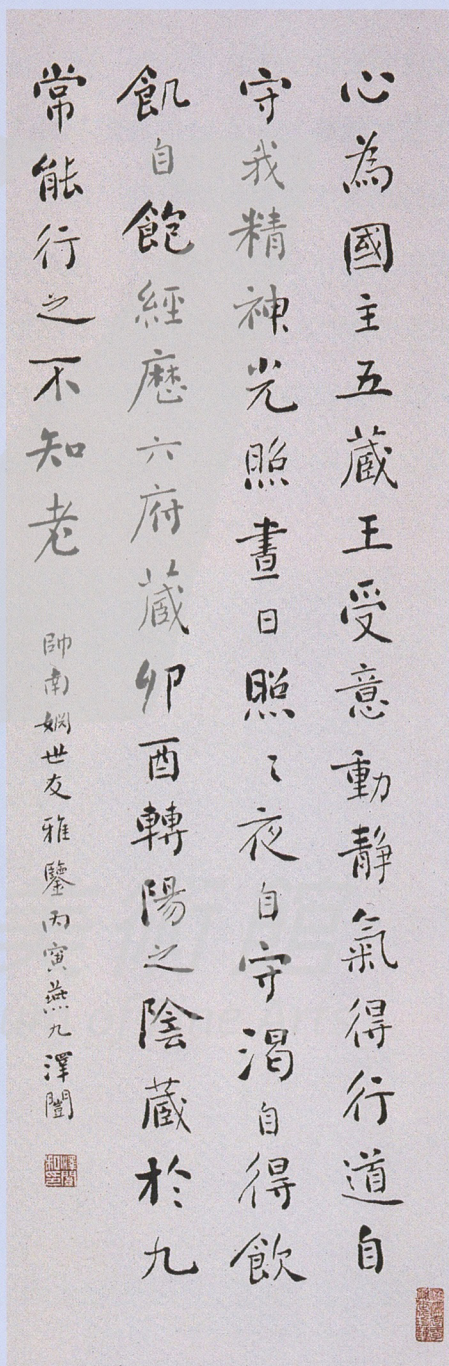 心為國主五蔵王受意動静氣得行道自
守我精神光照晝日照〻夜自守渴自得飲
飢自飽經歷六府蔵卯酉轉陽之陰蔵於九
常能行之不知老
帥南姻世友雅鑒丙寅燕九澤闓